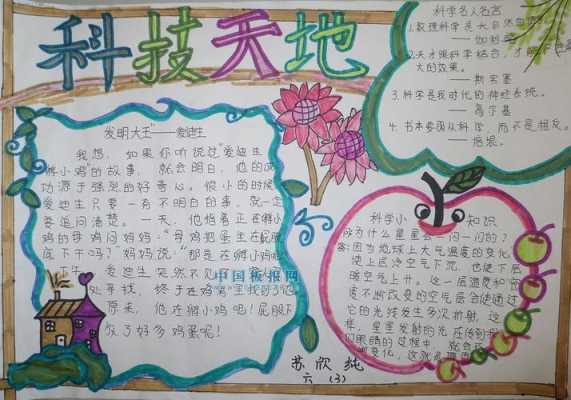 科技天地
科学名人名言
1.数理科学是大自然
——伽利略
2.天才跟科学结合，才能
大的效果。
——斯宾塞
3.科学是我时代的神经系统。
——高尔基
4.书本要跟从科学，而不是相反。
——培根。
发明大王"——爱迪生
我想，如果你听说过"爱迪生
孵小鸡"的故事，就会明白，他的成
功源于强烈的好奇心。很小的时候
爱迪生只要一有不明白的事，就一定
要追问清楚。一天，他指着正在孵小
鸡的母鸡问妈妈："母鸡把蛋坐在屁股
底下干吗？"妈妈说："那是在孵小鸡
爱迪生突然不见
处寻找，终于在鸡窝里找到了他
原来，他在孵小鸡呢！屁股下
放了好多鸡蛋呢！
中国板报网
科学小知识
为什么星星会一闪一闪的？
答：因为地球上大气温度的变化
使上层冷空气下沉，也使下层
暖空气上升。这一层温度和密
度不断改变的空气层会使通过
它的光线发生多次折射，这
样，星星发射的光在传到
们眼睛的过程中，就会
变化，这就是
苏欣纯
六（3）